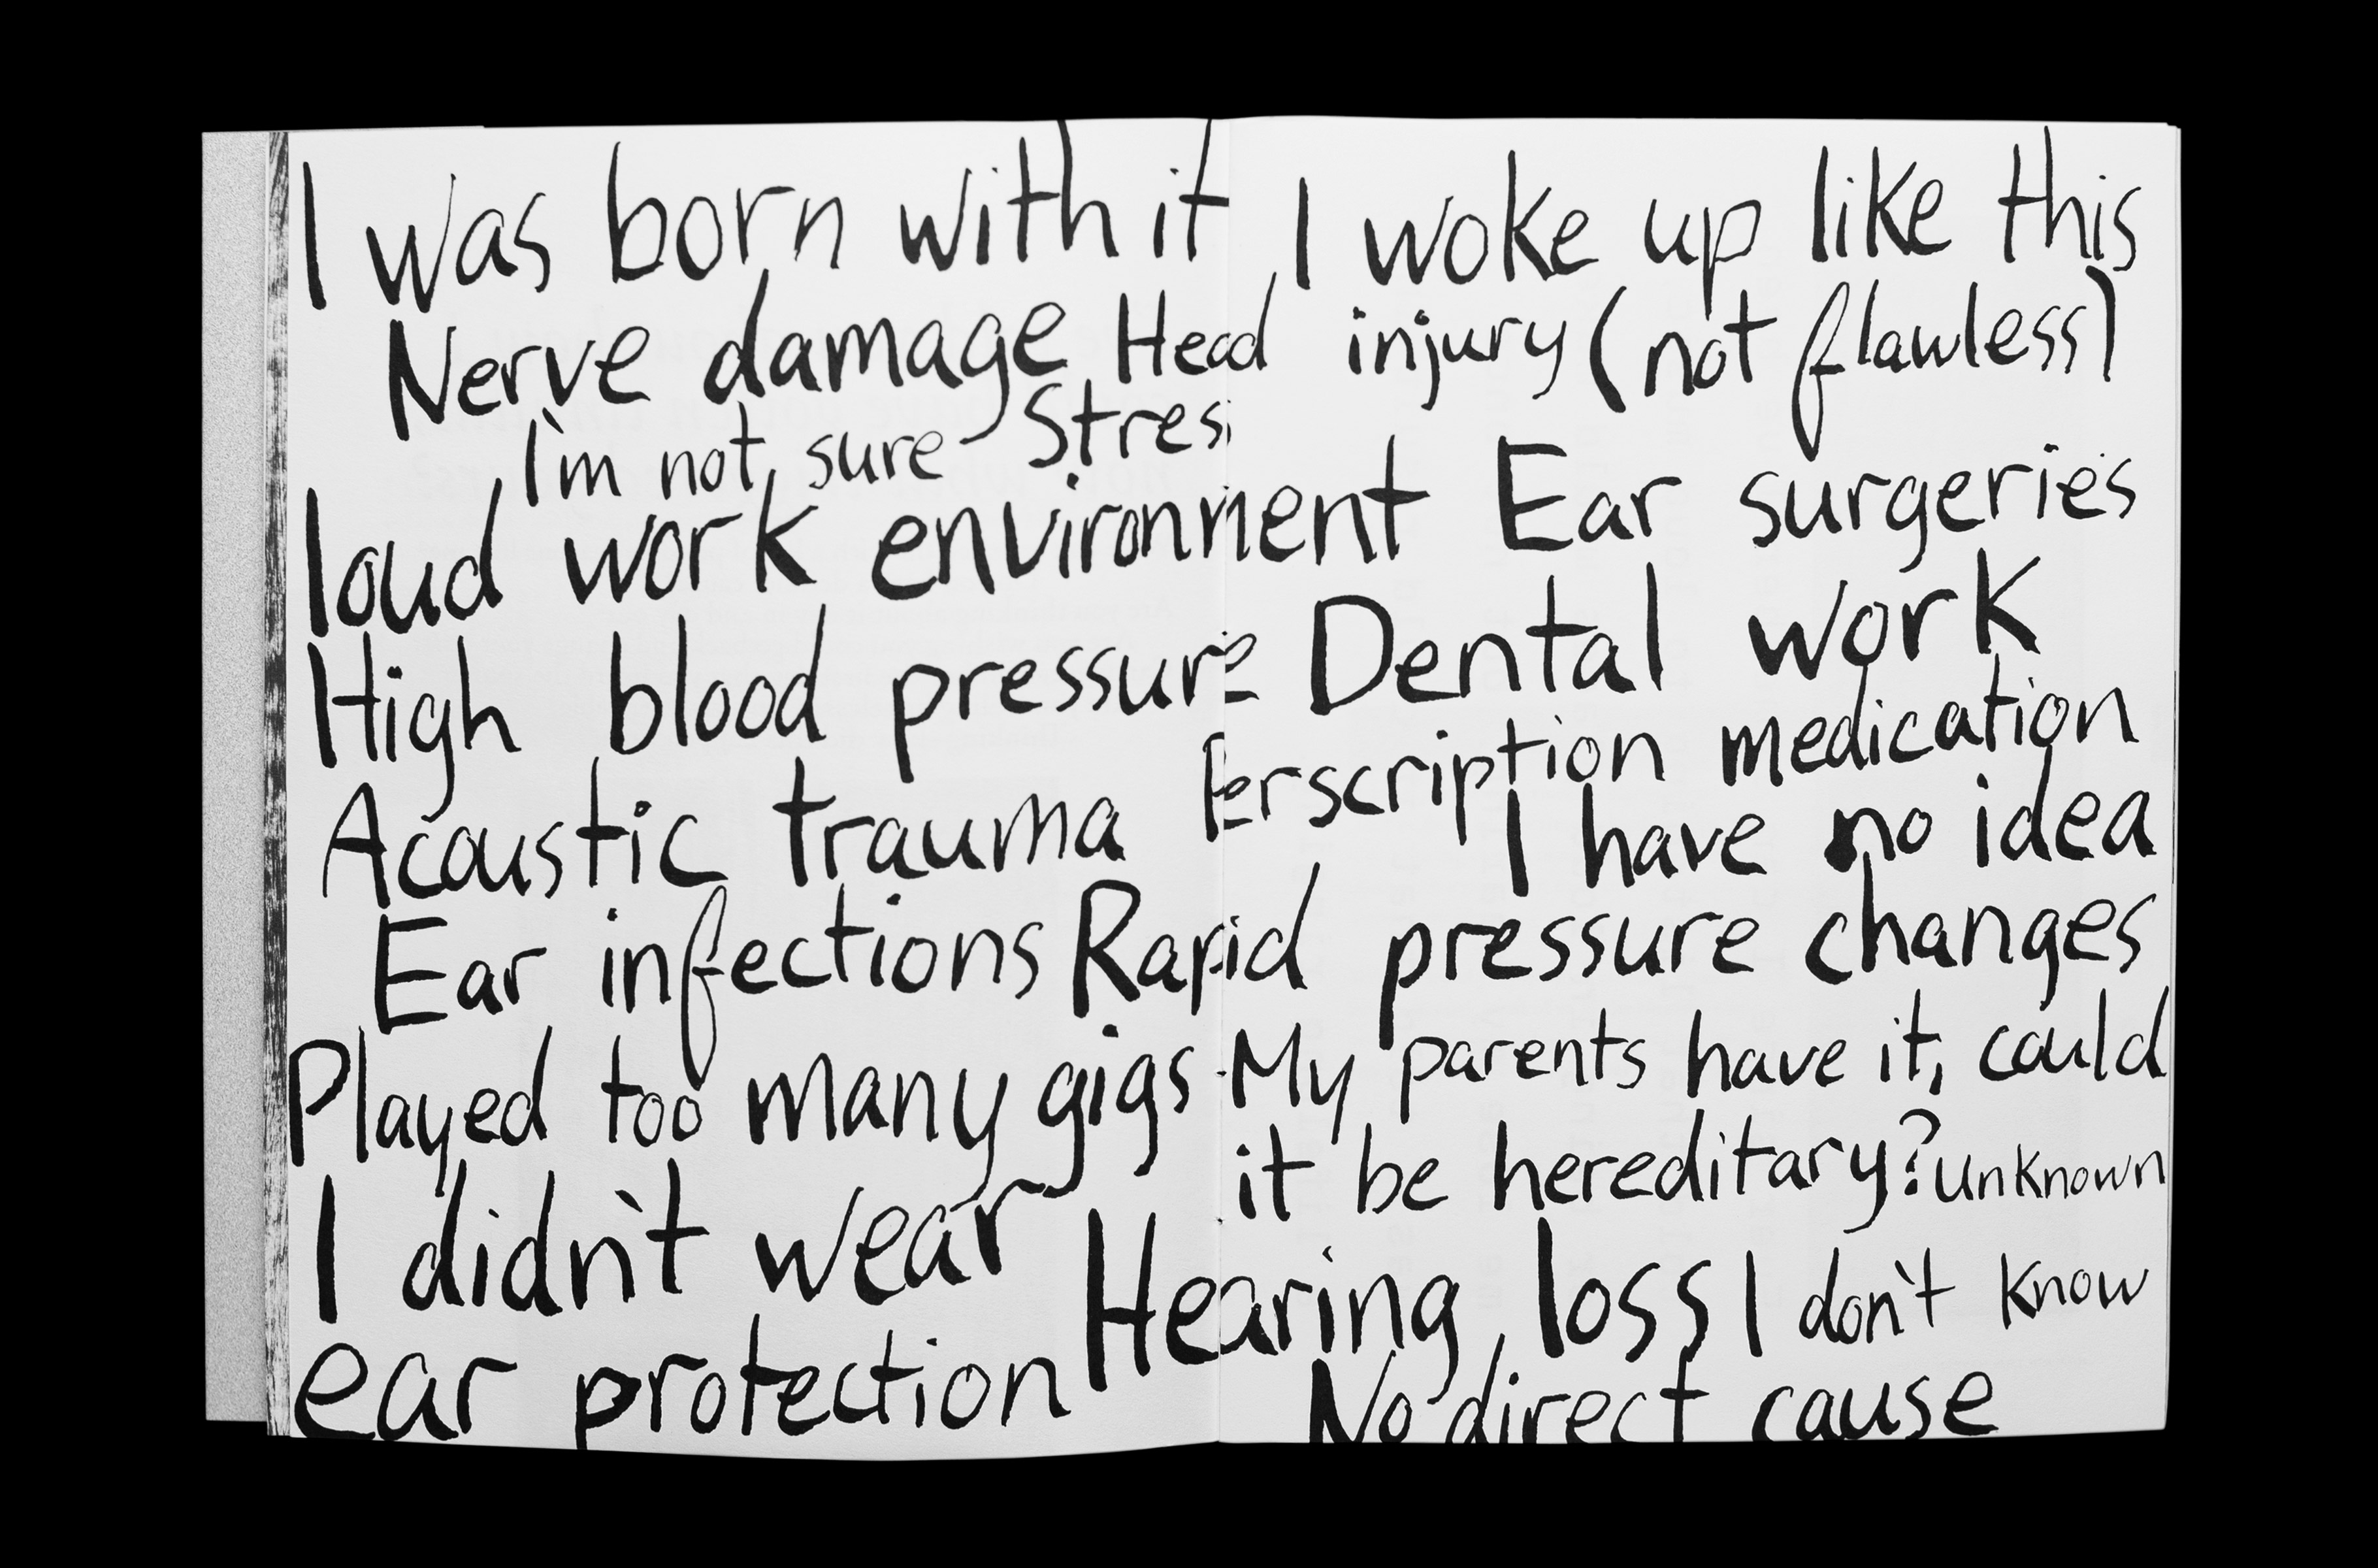 I was born with it I woke up like this
Nerve damage Head injury (not flawless)
I'm not sure Stres
loud work environment Ear surgeries
High blood pressure Dental work
Perscription medication
Acoustic trauma I have no idea
Ear infections Rapid pressure changes
Played too many gigs My parents have it, could
it be hereditary? unknown
I didn't wear Hearing loss I don't know
ear protection No direct cause